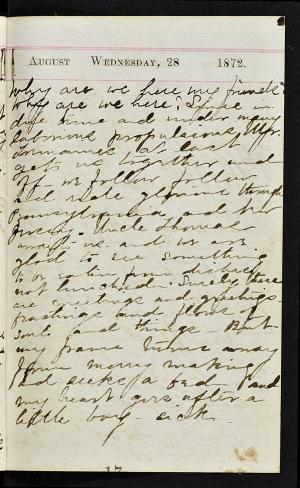 August Wednesday, 28 1872.
why are we here my friends
Why are we here? Space in
due time and under many
laborious propulsions
at last
gets us together and
off we follow follow
and ride glorious through
Pennsylvania and New
Jersey. Uncle Thomas
meets us and we are
glad to see something
to be eaten
not lunched. Surely there
are meetings and greetings
feastings and flows of
souls and things. But
my frame turns away
from merry making
and seeks a bed and
my heart goes after a
little boy sick.
17